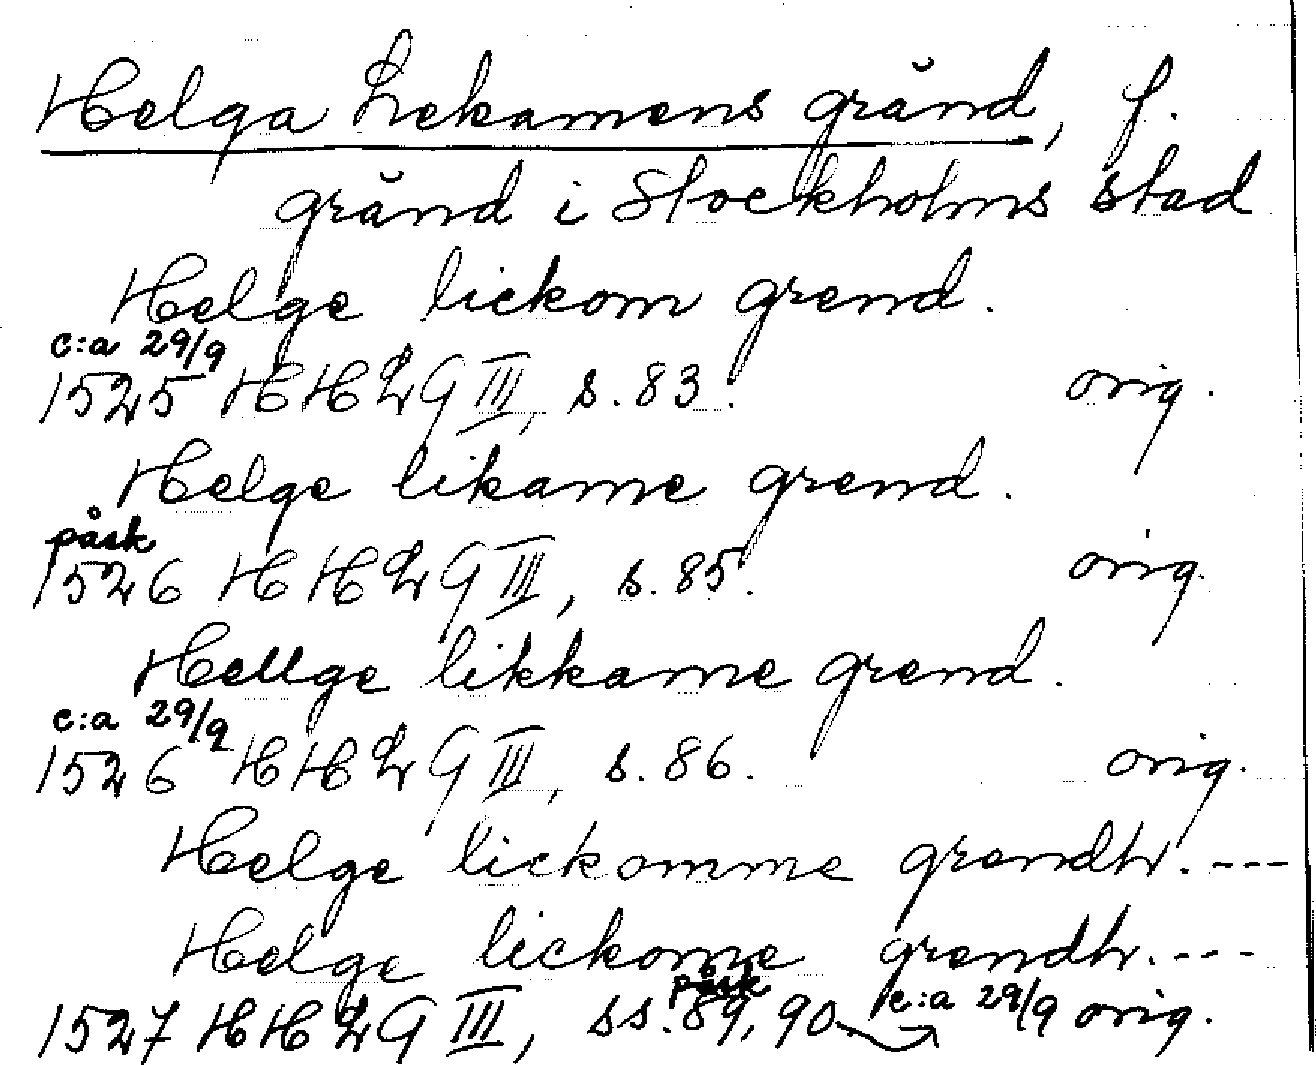 Helga Lekamens gränd, f.
gränd i Stockholms stad
Helge lickom grend.
c:a 29/9
1525 HHLG III, s. 83. orig.
Helge likame grend.
påsk
1526 HHLG III, s. 85. orig.
Hellge likkame grend.
c:a 29/9
1526 HHLG III, s. 86. orig.
Helge lickomme grendh. ---
Helge lickome grendh. ---
påsk
1527 HHLG III, ss. 89, 90 c:a 29/9 orig.